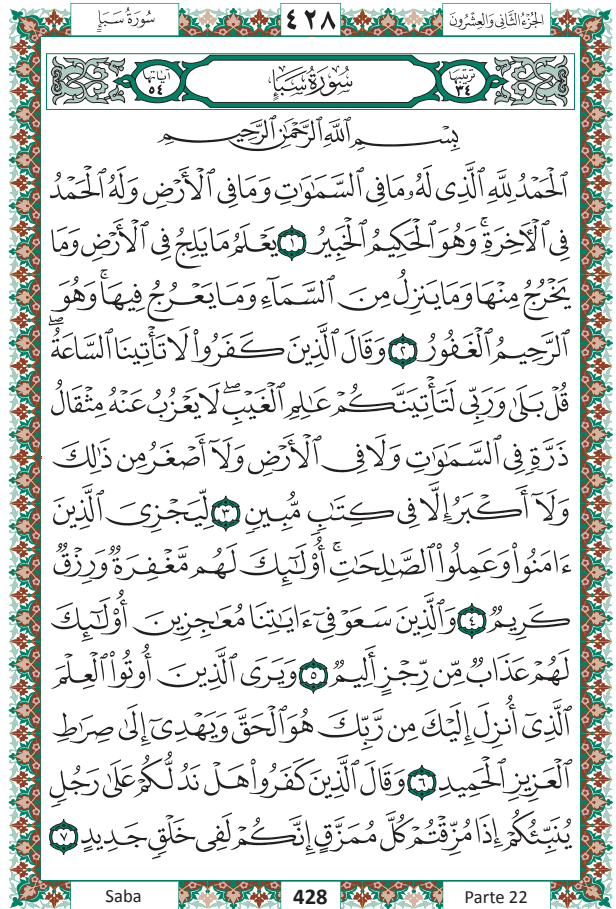 سُورَةُ سَبَإٍ ٤٢٨ الجُزْءُ الثَّانِي وَالعِشْرُونَ
آيَاتُهَا ٥٤ سُورَةُ سَبَإٍ تَرْتِيبُهَا ٣٤
بِسْمِ ٱللَّهِ ٱلرَّحْمَٰنِ ٱلرَّحِيمِ
ٱلْحَمْدُ لِلَّهِ ٱلَّذِى لَهُۥ مَا فِى ٱلسَّمَٰوَٰتِ وَمَا فِى ٱلْأَرْضِ وَلَهُ ٱلْحَمْدُ
فِى ٱلْأٓخِرَةِۚ وَهُوَ ٱلْحَكِيمُ ٱلْخَبِيرُ ١ يَعْلَمُ مَا يَلِجُ فِى ٱلْأَرْضِ وَمَا
يَخْرُجُ مِنْهَا وَمَا يَنزِلُ مِنَ ٱلسَّمَآءِ وَمَا يَعْرُجُ فِيهَاۚ وَهُوَ
ٱلرَّحِيمُ ٱلْغَفُورُ ٢ وَقَالَ ٱلَّذِينَ كَفَرُوا۟ لَا تَأْتِينَا ٱلسَّاعَةُۖ
قُلْ بَلَىٰ وَرَبِّى لَتَأْتِيَنَّكُمْ عَٰلِمِ ٱلْغَيْبِۖ لَا يَعْزُبُ عَنْهُ مِثْقَالُ
ذَرَّةٍ فِى ٱلسَّمَٰوَٰتِ وَلَا فِى ٱلْأَرْضِ وَلَآ أَصْغَرُ مِن ذَٰلِكَ
وَلَآ أَكْبَرُ إِلَّا فِى كِتَٰبٍ مُّبِينٍ ٣ لِّيَجْزِىَ ٱلَّذِينَ
ءَامَنُوا۟ وَعَمِلُوا۟ ٱلصَّٰلِحَٰتِۚ أُو۟لَٰٓئِكَ لَهُم مَّغْفِرَةٌ وَرِزْقٌ
كَرِيمٌ ٤ وَٱلَّذِينَ سَعَوْ فِىٓ ءَايَٰتِنَا مُعَٰجِزِينَ أُو۟لَٰٓئِكَ
لَهُمْ عَذَابٌ مِّن رِّجْزٍ أَلِيمٌ ٥ وَيَرَى ٱلَّذِينَ أُوتُوا۟ ٱلْعِلْمَ
ٱلَّذِىٓ أُنزِلَ إِلَيْكَ مِن رَّبِّكَ هُوَ ٱلْحَقَّ وَيَهْدِىٓ إِلَىٰ صِرَٰطِ
ٱلْعَزِيزِ ٱلْحَمِيدِ ٦ وَقَالَ ٱلَّذِينَ كَفَرُوا۟ هَلْ نَدُلُّكُمْ عَلَىٰ رَجُلٍ
يُنَبِّئُكُمْ إِذَا مُزِّقْتُمْ كُلَّ مُمَزَّقٍ إِنَّكُمْ لَفِى خَلْقٍ جَدِيدٍ ٧
Saba 428 Parte 22